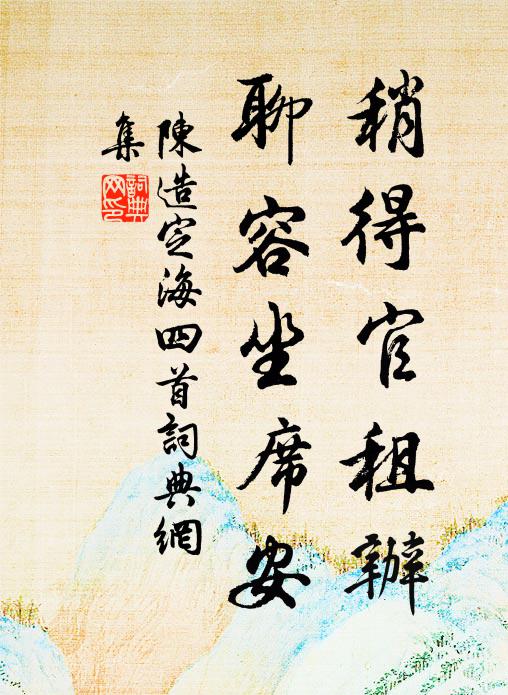 稍得官租辦
聊容坐席安
陳造定海四首詞典網
集
詞典网印